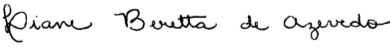 Liane Beretta de Azevedo